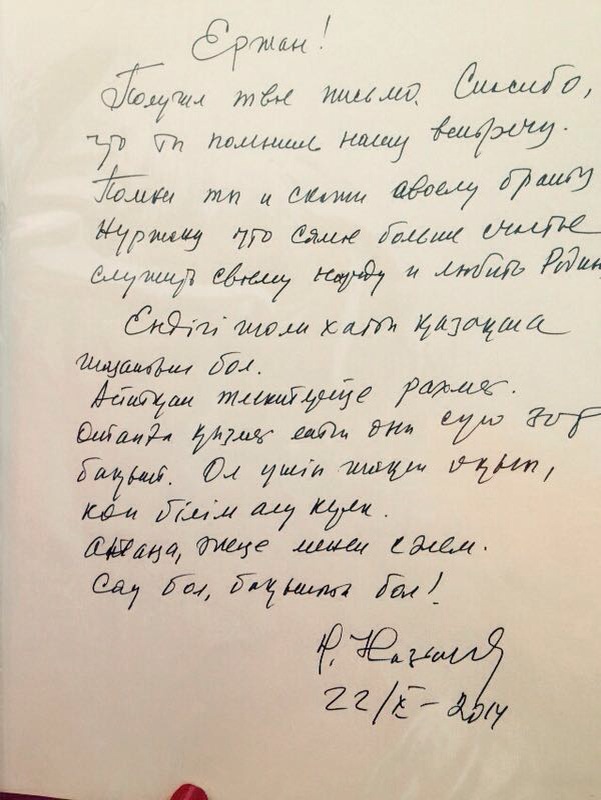 Ержан!
Получил твое письмо. Спасибо,
что ты помнишь нашу встречу.
Помни ты и скажи своему братцу
Нуржану что самое больше счастье
служить своему народу и любить Родину
Ендігі жолы хатты қазақша
жазатын бол.
Айтқан тілектеріңе рахмет.
Отанға қызмет етіп оны сүю зор
бақыт. Ол үшін жақсы оқып,
көп білім алу керек.
менен сәлем.
Сау бол, бақытты бол!
Н. Назарбаев
22/X – 2014